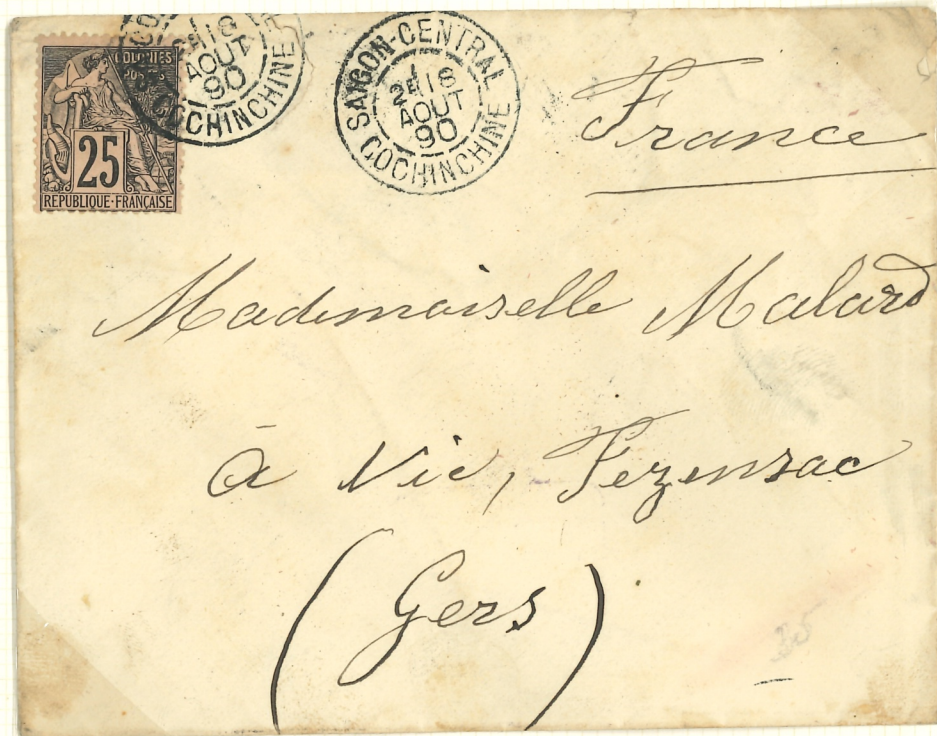 COLONIES
POSTES
25
REPUBLIQUE·FRANÇAISE
1
2E 18
AOUT
90
COCHINCHINE
SAIGON-CENTRAL
1
2E 18
AOUT
90
COCHINCHINE
France
Mademoiselle Malard
à Vic, Fezensac
(Gers)
35